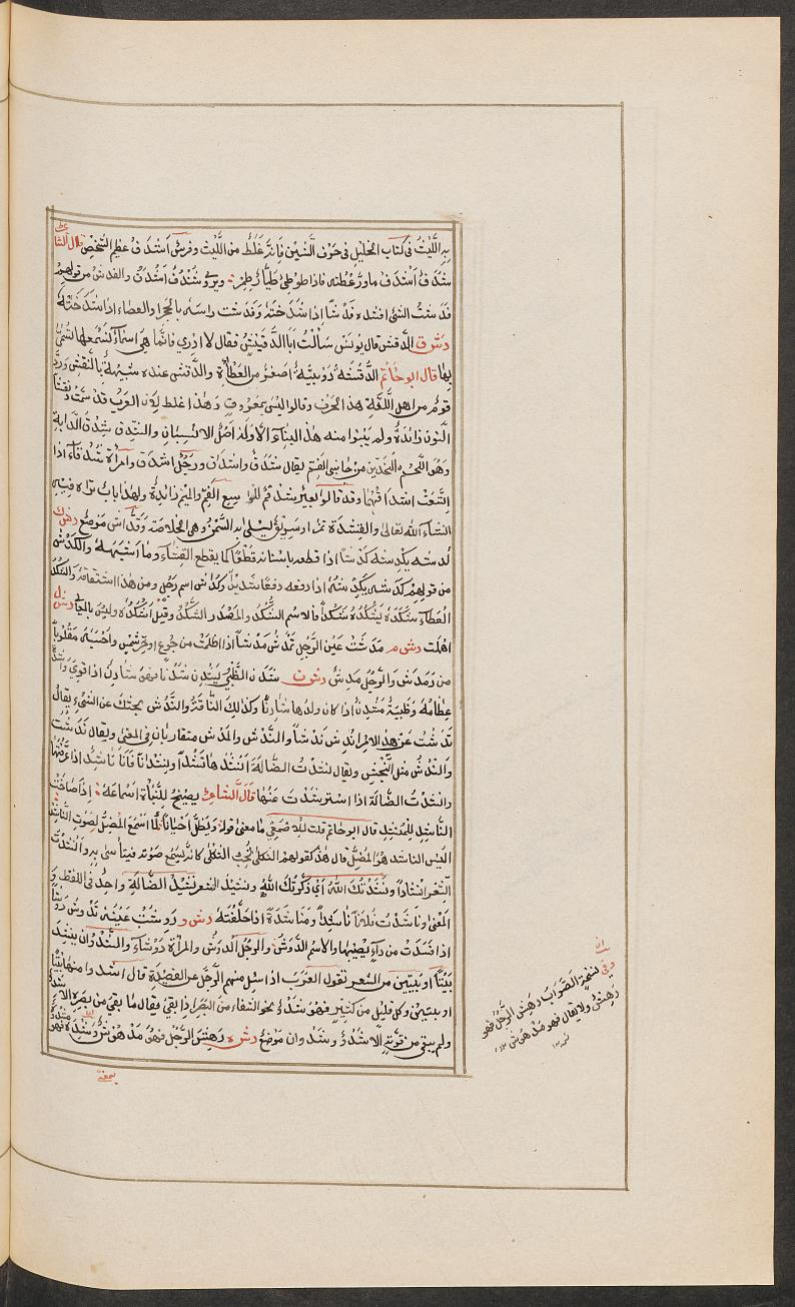 به اللَّيْثُ فى كتاب الخليل فى حرف الشين فانه غلط من الليث وفرس اشدف عظيم الشخص قال الشاعر
شندف اشدف ماورعته فاذا طوطئ طيار طمر ويروى شندف اشدف والفدش من قولهم
فدشت الشئ افدشه فدشا اذا شدخته وفدشت راسه بالحجر او العصاء اذا شدخته
دش ق الدقش قال يونس سالت ابا الدقيش فقال لا ادرى فانما هى اسماء نسمعها نتسمى
بها قال ابو حاتم الدقشة دويبة اصغر من العظاة والدقش عنده شبيهة بالنقش ورد
قوم من اهل اللغة هذا الحرف وقالوا ليس بمعروف وهذا غلط لان العرب قد سمت دنقشا
النون زائدة ولم يبنوا منه هذا البناء الا وله اصل الانسيان والشدق شدق الدابة
وهو اللحم من جانبى الفم يقال شدق واشداق ورجل اشدق وامرأة شدقاء اذا
اتسعت اشداقهما وقد قالوا بعير شدقم للواسع الفم والميم زائدة ولهذا باب تراه فيه
انشاء الله تعالى والقشدة تمر او سويق ليسلى به السمن وهى الخلاصة وقد اش موضع دش ك
كدشه يكدشه كدشا اذا قطعه باسنانه قطعا كما يقطع القثاء وما اشبهه والكدش
من قولهم كدشه يكدشه اذا دفعه دفعا شديدا وكداش اسم رجل ومن هذا اشتقاقه والشكد
العطاء شكده يشكده شكدا فالاسم الشكد والمصدر الشكد وقيل اشكده وليس بالعالى دش ل
اهملت دش م مدشت عين الرجل تمدش مدشا اذا اظلمت من جوع او حر شمس واحسبه مقلوبا
من دمدش والرجل مدش دش ن شدن الظبى يشدن شدنا فهو شادن اذا قوى واشتد
عظامه وظبية مشدن اذا كان ولدها شادنا وكذلك الناقة والندش بحثك عن الشئ يقال
ندشت عن هذا الامر اندش ندشا والندش والمدش متقاربان فى المعنى ويقال ندشت
والندش مثل النجش ويقال نشدت الضالة انشدها نشدا ونشدانا فانا ناشد اذا عرفتها
وانشدت الضالة اذا استرشدت عنها قال الشاعر يصيخ للنبأة اسماعه اذا صاخت
الناشد للمنشد قال ابو حاتم قلت للاصمعى ما معنى قوله ويظل احيانا كما استمع المضل لصوت الناشد
اليس الناشد هو المضل قال هذا كقولهم الثكلى تحب الثكلى كانه يسمع صوته فيتأسى به وانشدت
الشعر انشادا ونشدتك الله اى ذكرتك الله ونشيد الشعر نشيد الضالة واحد فى اللفظ و
المعنى وناشدت فلانا نشدا ومناشدة اذا حلفته دش و دوشت عينه تدوش دوشا
اذا فسدت من داء يصيبها والاسم الدوش والرجل ادوش والمرأة دوشاء والشدو ان ينشد
بيتا او بيتين من الشعر تقول العرب اذا سئل منهم الرجل عن القصيدة قال اشدوا منها بيتا
او بيتين وكل قليل من كثير فهو شدو نحو الشفاء من البصر اذا بقى فقال ما بقى من بصره الا شدا
ولم يبق من قوته الا شدو وشدوان موضع دش ه دهش الرجل فهو مدهوش وشده فهو مشدوه
وفى نسخة الصواب دهش الرجل فهو
دهش ولا يقال فهو مدهوش